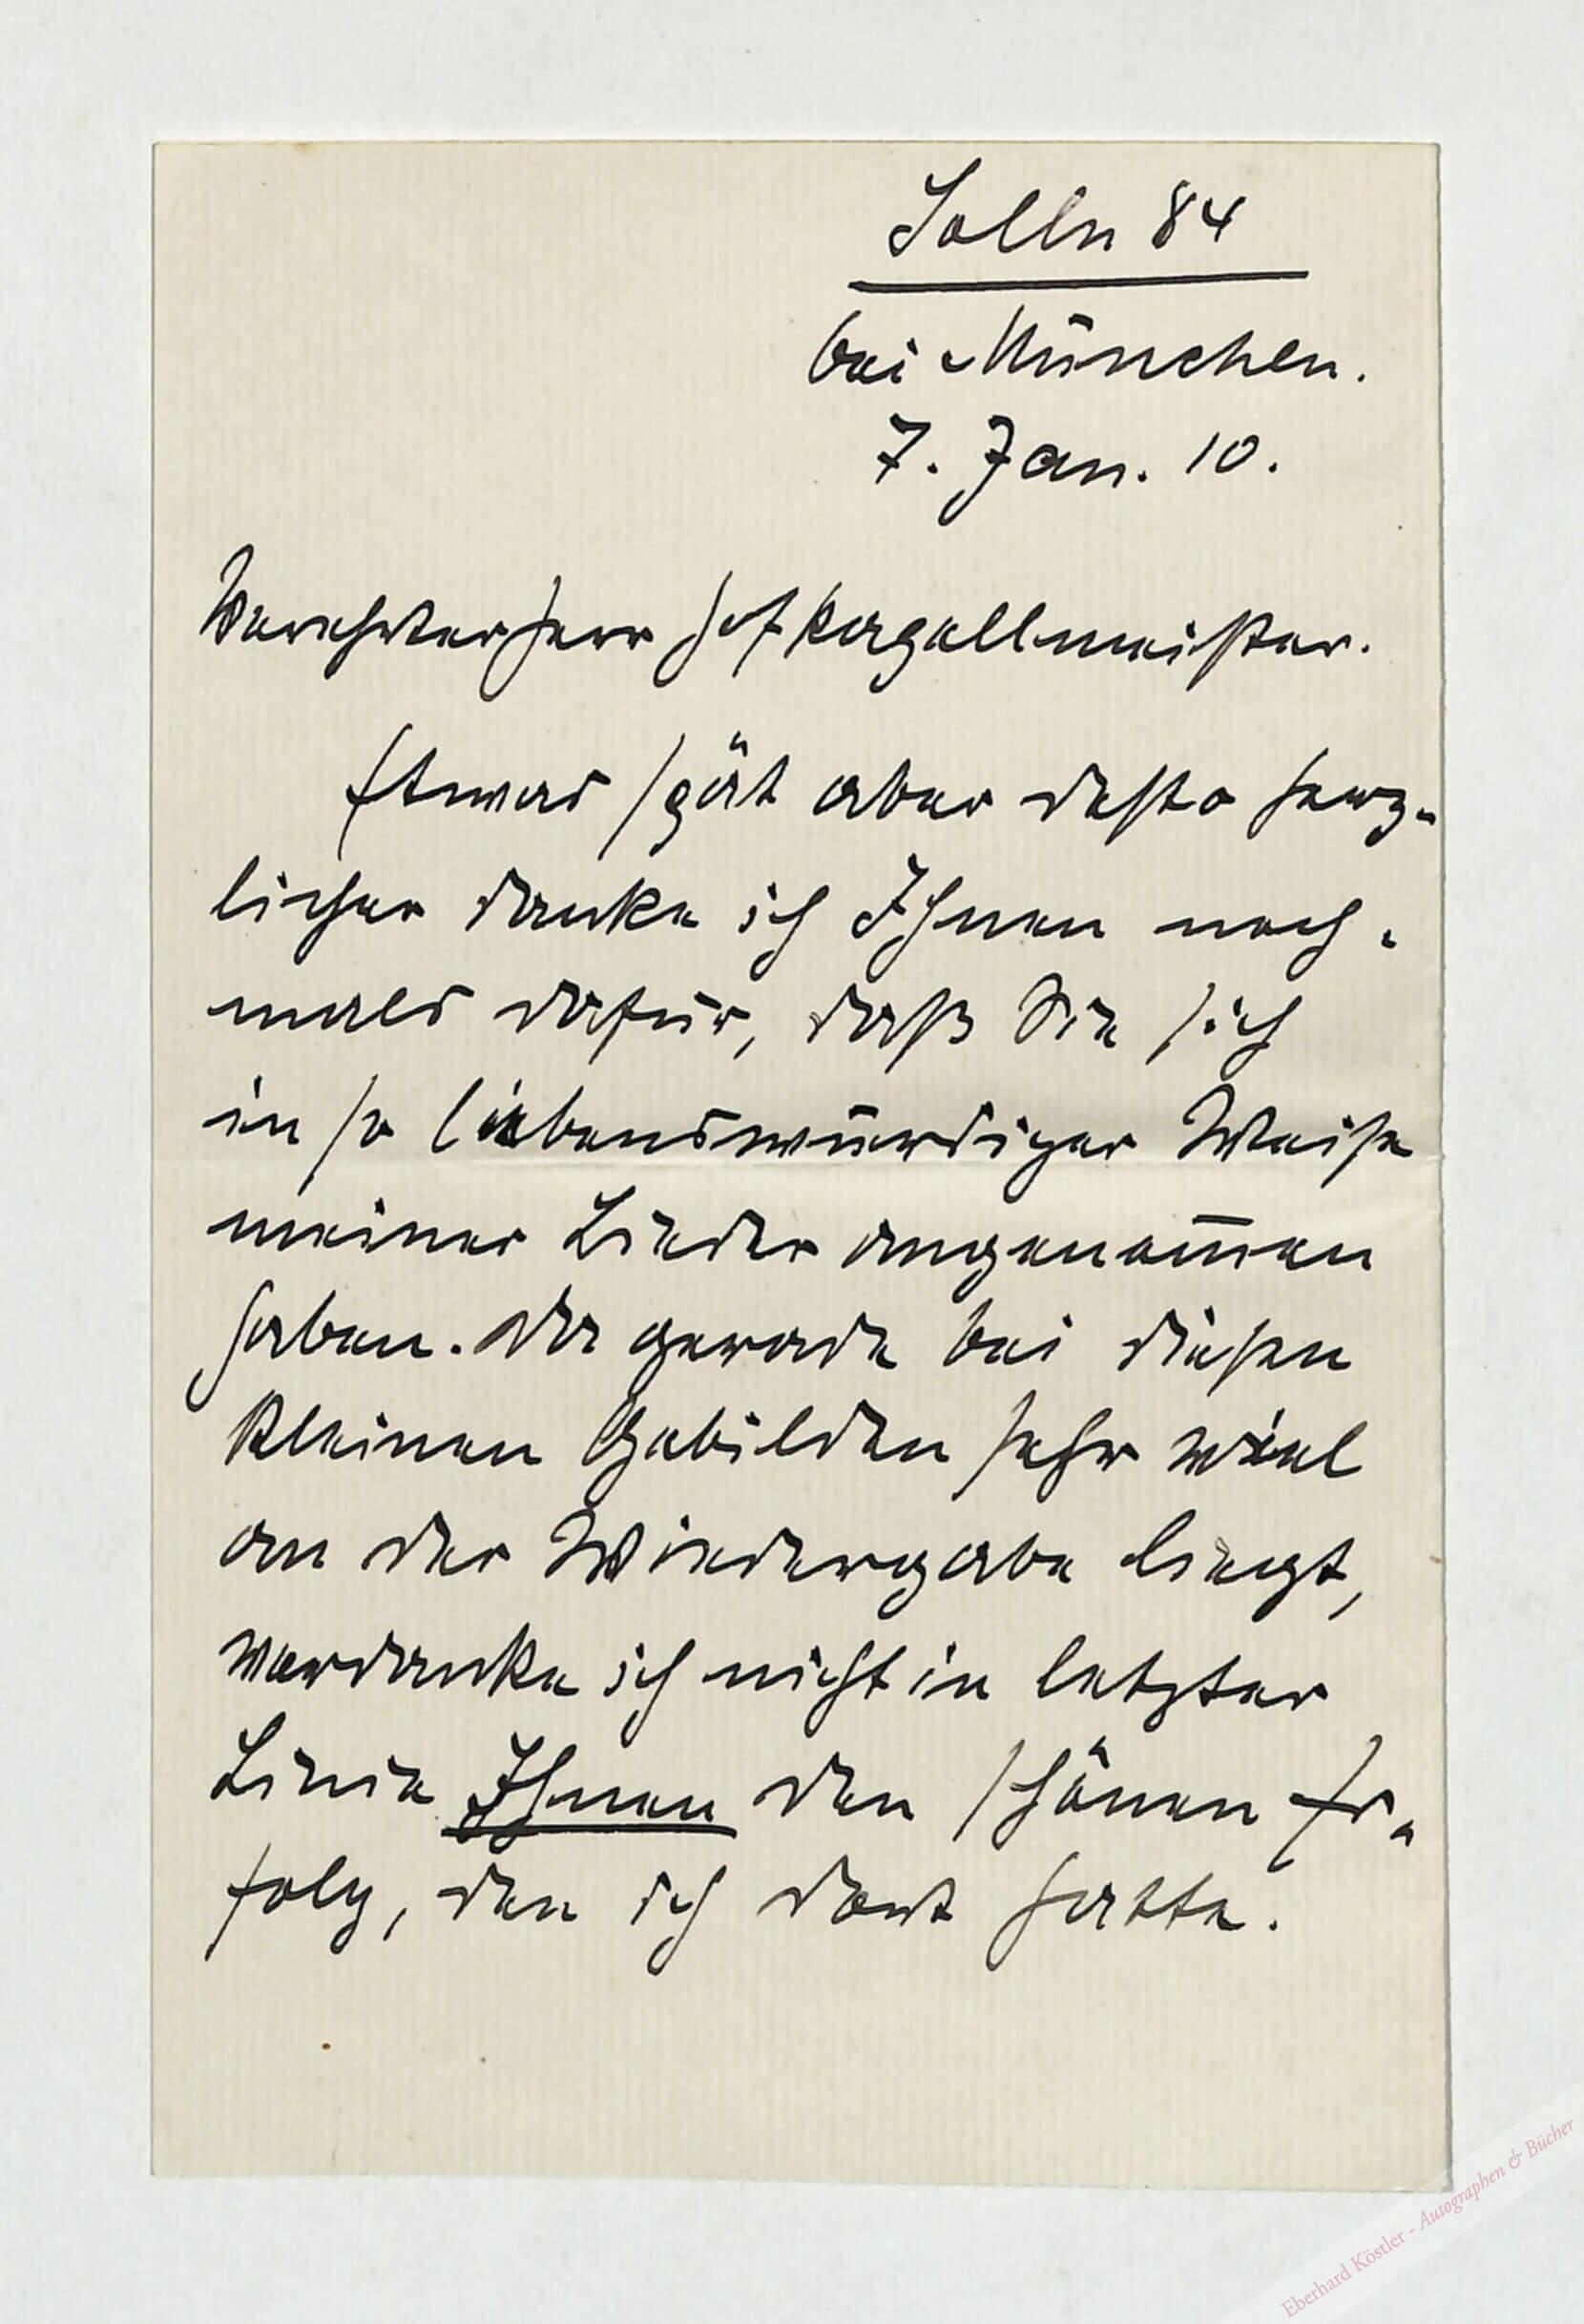 Solln 84
bei München.
7. Jan. 10.
Verehrter Herr Hofkapellmeister.
Etwas spät aber desto herz-
licher danke ich Ihnen noch-
mals dafür, daß Sie sich
in so liebenswürdiger Weise
meiner Lieder angenom̅en
haben. Da gerade bei diesen
kleinen Gebilden sehr viel
an der Wiedergabe liegt,
verdanke ich nicht in letzter
Linie Ihnen den schönen Er-
folg, den ich dort hatte.
Eberhard Köstler - Autographen & Bücher